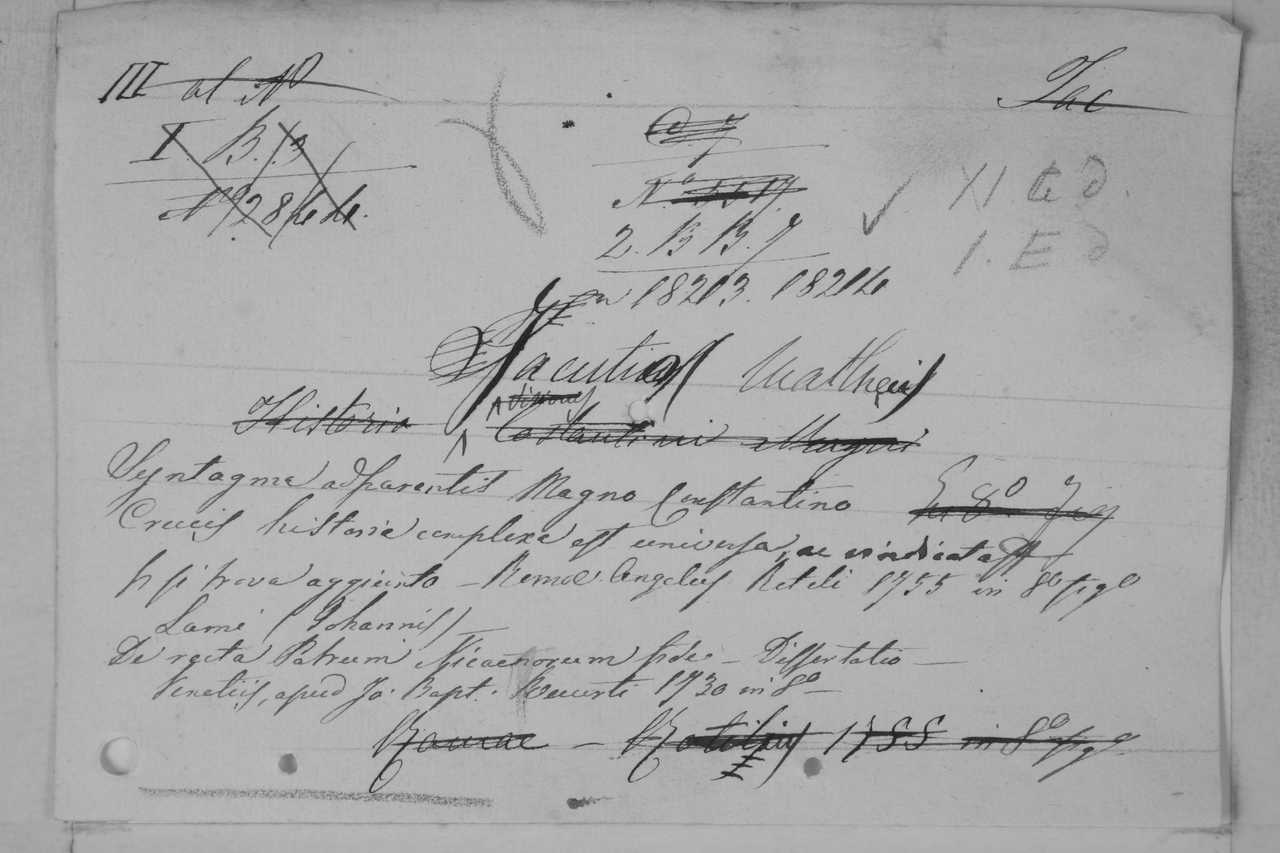 III al No
Jac
I. B. 3
No 28
No
2. B B. 7
XI. G d.
I. E d
18213. 18214
Jacutius Matheus
visionis
Historia Costantini Magni
Syntagma adparentis Magno Constantino in 8o fig
Crucis historia complexa est universa, ac vindicata
si trova aggiunto – Romae Angelus Rotili 1755 in 8o fig
Lami (Johannis)
De recta Patrum Nicaenorum fide. – Dissertatio –
Venetiis, apud Jo. Bapt. Recurti 1730 in 8o –
Romae – Rotilius 1755 in 8o fig